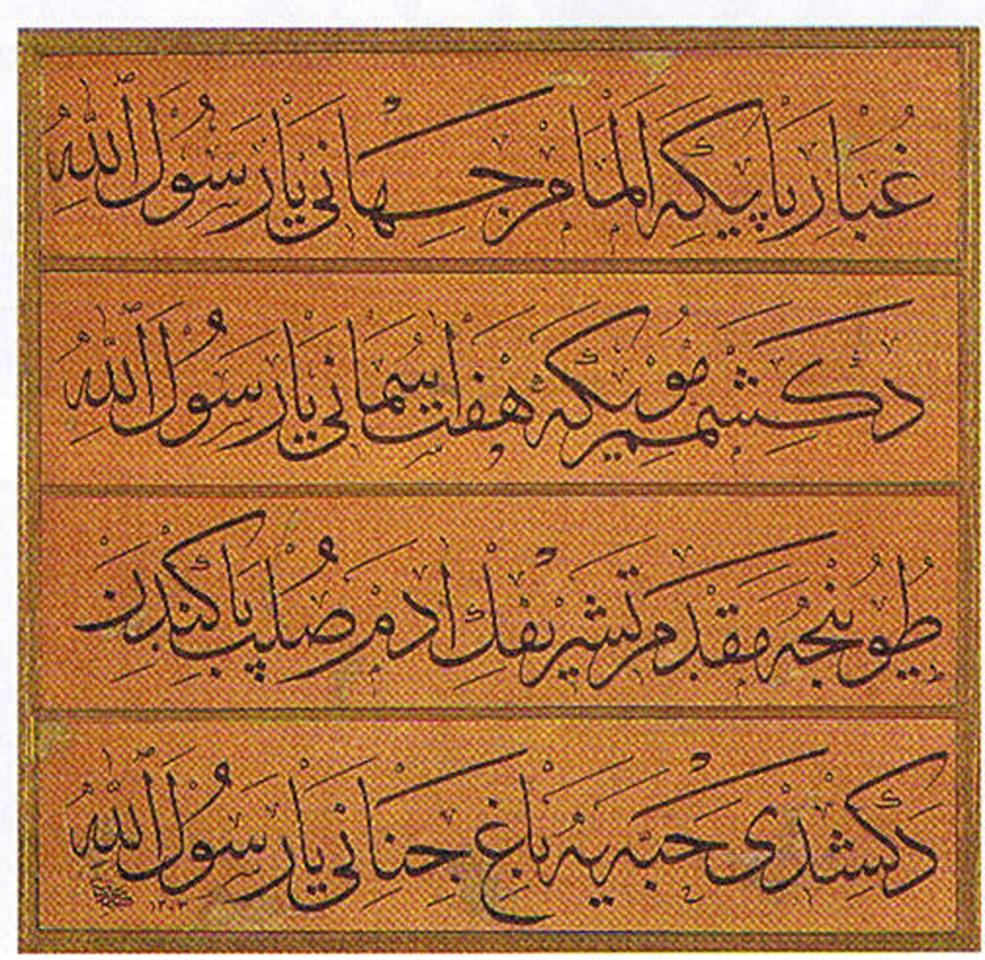 غُبَارِ پایِیكه المَام جهانی یا رَسُولَ اللّٰه
دكشمم مُویِكه هفت اسمانی یا رَسُولَ اللّٰه
طُوینجه مقدم تشریفك ادم صُلب پاكندن
دكشدی حبّه یه باغ جنانی یا رَسُولَ اللّٰه